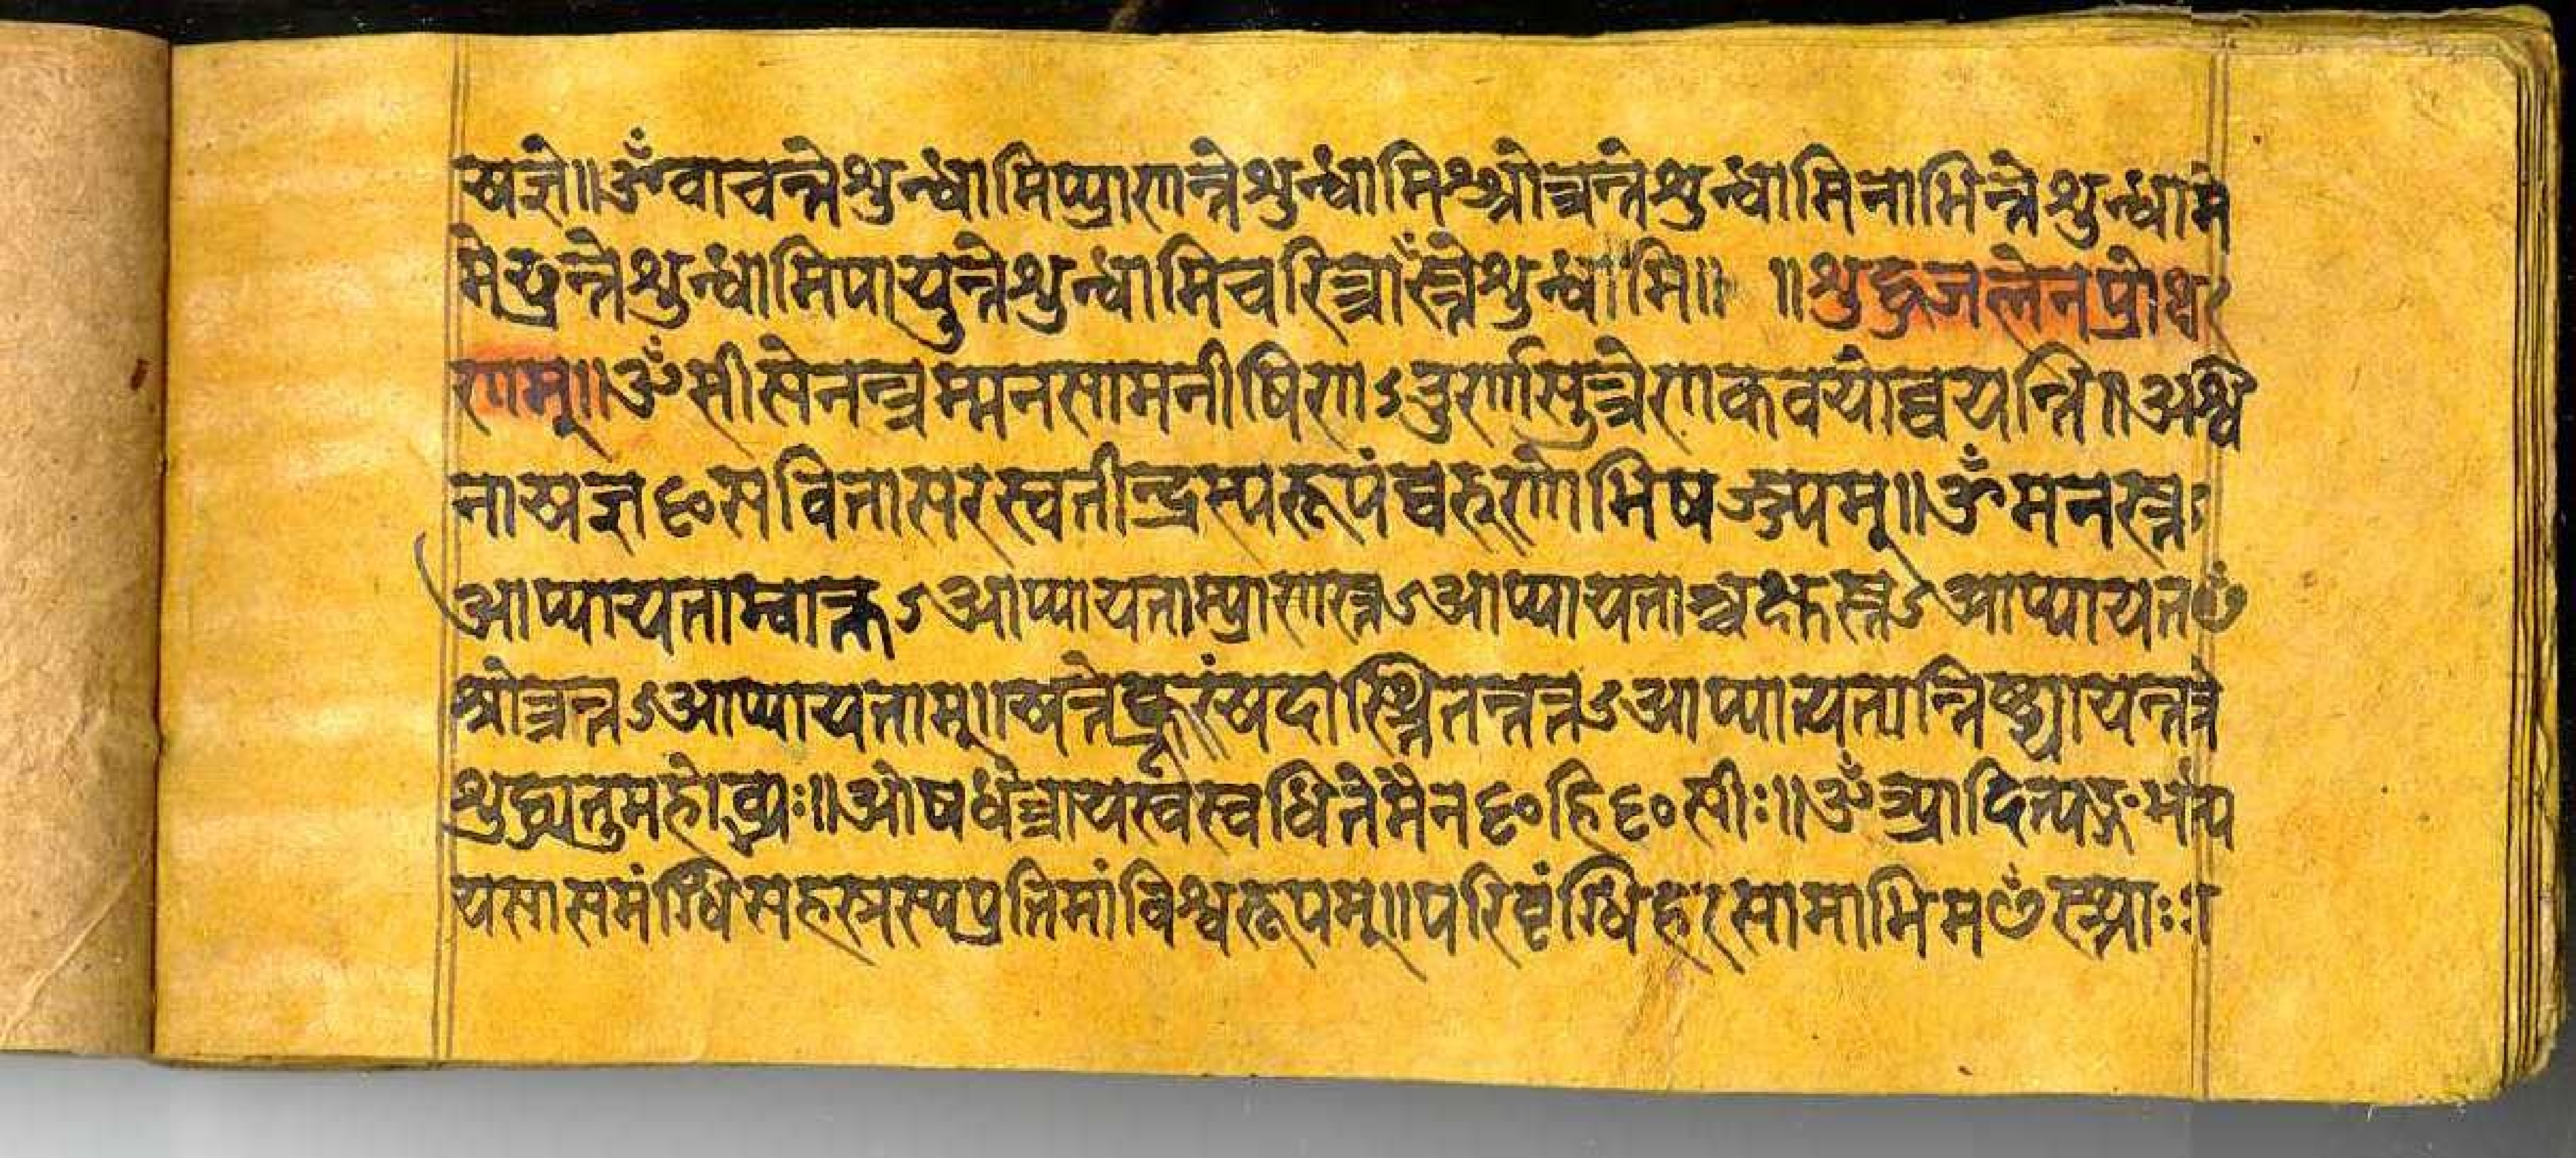 षज्ञे॥ॐवाचन्तेशुन्धामिप्प्राणन्तेशुन्धामिश्श्रोत्रन्तेशुन्धामिनाभिन्तेशुन्धामि
मेढ्रन्तेशुन्धामिपायुन्तेशुन्धामिचरित्राँस्तेशुन्धामि॥ ॥शुद्धजलेनप्रोक्ष
णम्॥ॐसीसेनतन्त्रम्मनसामनीषिणऽउर्णासुत्रेणकवयोव्वयन्ति॥अश्वि
नाषज्ञꣳसवितासरस्वतीन्द्रस्यरूपंव्वरुणोभिषज्ज्यम्॥ॐमनस्तऽ
आप्प्यायताम्वाक्तऽआप्प्यायताम्प्राणस्तऽआप्प्यायताञ्चक्षुस्तऽआप्प्यायताँ
श्रोत्रन्तऽआप्प्यायताम्॥षत्तेक्क्रूरंषदास्थितन्तत्तऽआप्प्यायतान्निष्ट्यायतान्तत्ते
शुद्ध्यतुमहोब्भ्यः॥ओषधेत्त्रायस्वस्वधितेमैनꣳहिꣳसीः॥ॐआदित्यङ्गर्भंप
यसासमंग्धिसहस्रस्यप्रतिमांविश्वरूपम्॥परिवृंग्धिहरसामाभिमꣳस्थाः